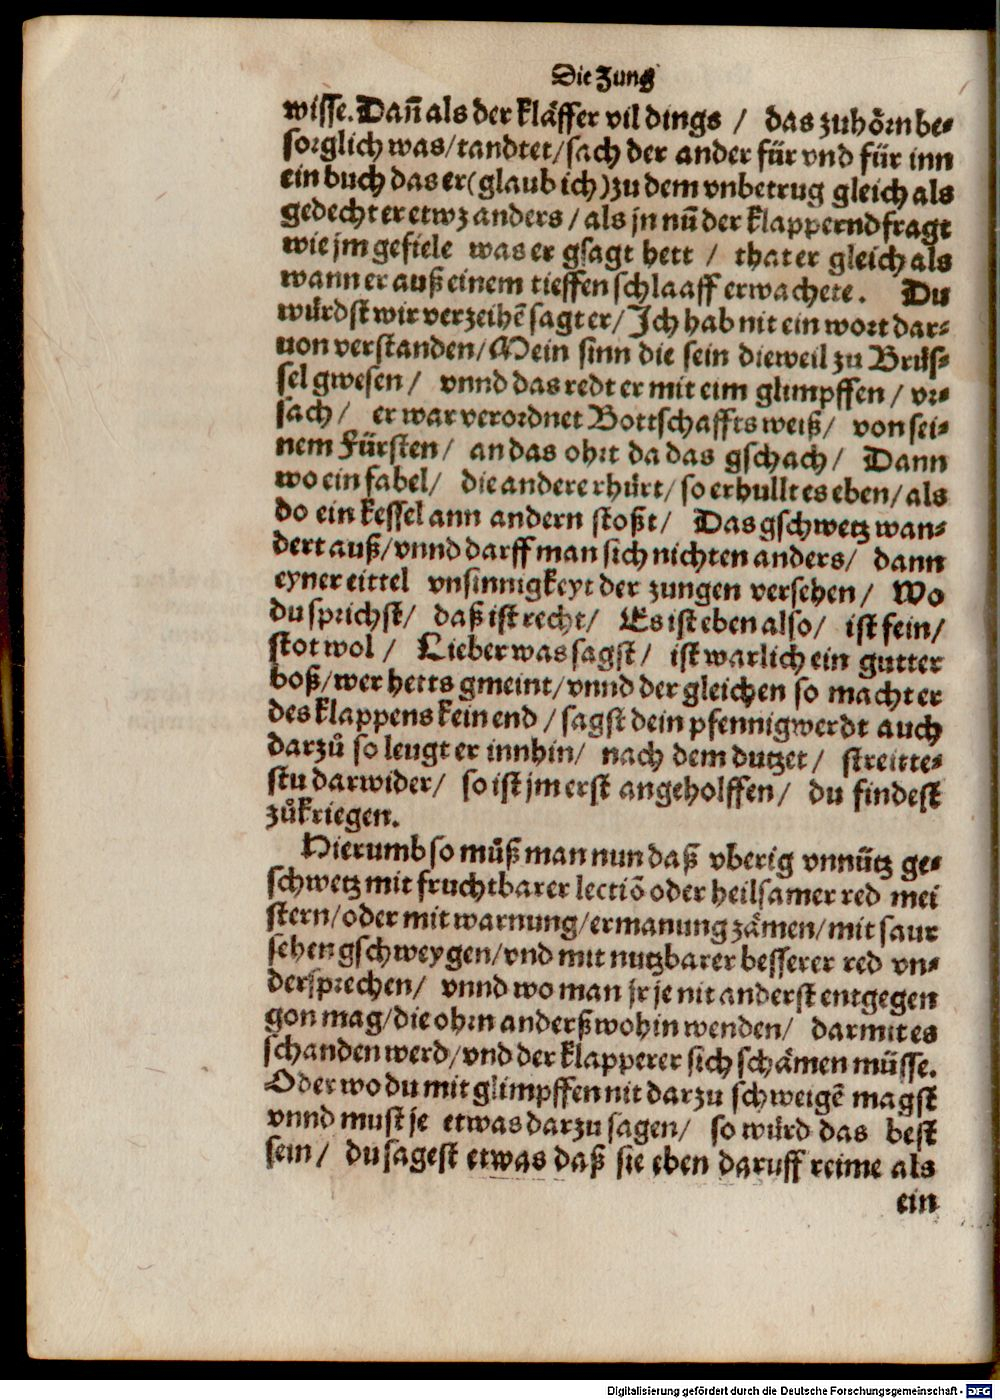 Die Zung
wisse. Dañ als der kläffer vil dings / das zuhörn be-
sorglich was/tandtet/sach der ander für vnd für inn
ein buch das er(glaub ich)zu dem vnbetrug gleich als
gedecht er etwz anders / als jn nũ der klappernd fragt
wie jm gefiele was er gsagt hett / that er gleich als
wann er auß einem tieffen schlaaff erwachete. Du
würdst wir verzeihẽ sagt er/ Ich hab nit ein wort dar-
uon verstanden/ Mein sinn die sein dieweil zu Brüs-
sel gwesen / vnnd das redt er mit eim glimpffen / vr-
sach / er war verordnet Bottschaffts weiß/ von sei-
nem Fürsten/ an das ohrt da das gschach/ Dann
wo ein fabel/ die andere rhürt/ so erhullt es eben/ als
do ein kessel ann andern stoßt/ Das gschwetz wan-
dert auß/vnnd darff man sich nichten anders/ dann
eyner eittel vnsinnigkeyt der zungen versehen/ Wo
du sprichst/ daß ist recht/ Es ist eben also/ ist fein/
stot wol / Lieber was sagst/ ist warlich ein gutter
boß/wer hetts gmeint/vnnd der gleichen so macht er
des klappens kein end / sagst dein pfennigwerdt auch
darzů so leugt er innhin/ nach dem dutzet/ streitte-
stu darwider/ so ist jm erst angeholffen/ du findest
zů kriegen.
Hierumb so můß man nun daß vberig vnnütz ge-
schwetz mit fruchtbarer lectiõ oder heilsamer red mei
stern/oder mit warnung/ermanung zämen/mit saur
sehen gschweygen/vnd mit nutzbarer besserer red vn-
dersprechen/ vnnd wo man jr je nit anderst entgegen
gon mag/die ohrn anderß wohin wenden/ darmit es
schanden werd/vnd der klapperer sich schämen müsse.
Oder wo du mit glimpffen nit darzu schweigẽ magst
vnnd must je etwas darzu sagen/ so würd das best
sein/ du sagest etwas daß sie eben daruff reime als
ein
Digitalisierung gefördert durch die Deutsche Forschungsgemeinschaft - DFG